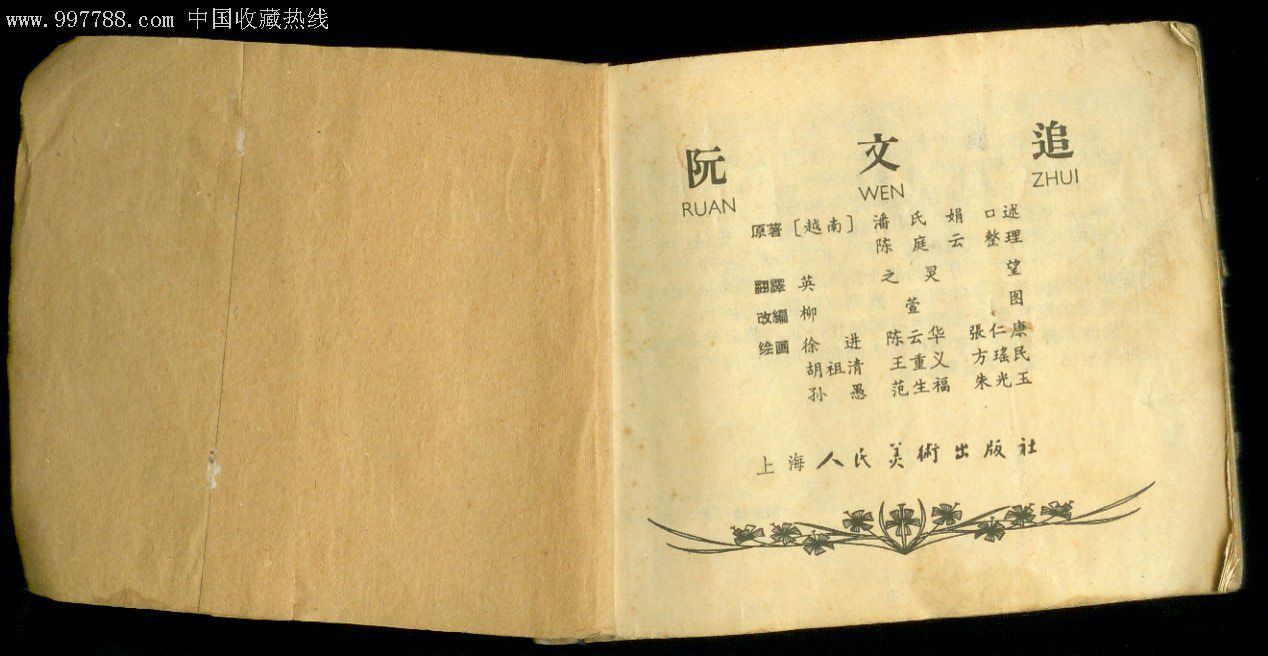 www.997788.com 中国收藏热线
阮 文 追
RUAN WEN ZHUI
原著［越南］ 潘氏娟 口述
陈庭云 整理
翻譯 英之 炅望
改編 柳萱图
绘画 徐进 陈云华 張仁康
胡祖清 王重义 方瑤民
孙愚 范生福 朱光玉
上海人民美術出版社